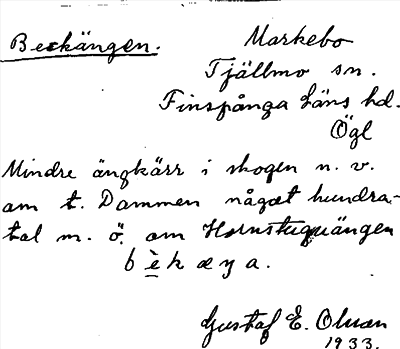 Beckängen.
Markebo
Tjällmo sn.
Finspånga läns hd.
Ögl
Mindre ängkärr i skogen n. v.
om t. Dammen något hundra-
tal m. ö. om Hornstuguängen
b è k æ ŋ a.
Gustaf E. Olsson
1933.